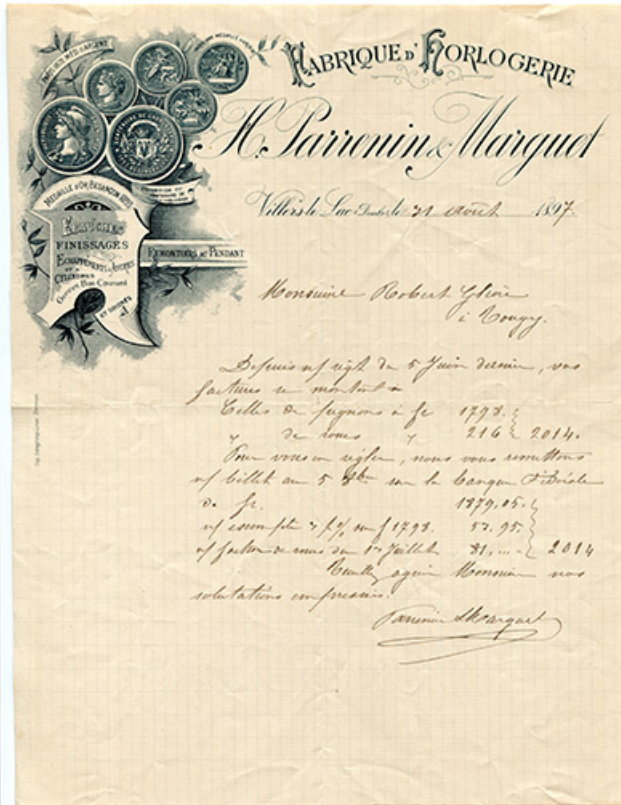 FABRIQUE D'HORLOGERIE
H. Parrenin & Marguet
Villers-le-Lac (Doubs) le 31 août 1897
MÉDAILLE D'OR, BESANÇON 1893
ÉBAUCHES
FINISSAGES
ÉCHAPPEMENTS À ANCRES
ET À
CYLINDRES
Genres Bon Courant
ET SOIGNÉS
REMONTOIRS AU PENDANT
Monsieur Robert
à
Depuis n/ règt du 5 Juin dernier, vos
factures se montent à
Celles de pignons à fr 1798.
" de roues " 216 2014.
Pour vous en régler, nous vous remettons
n/ billet au 5 8bre sur la banque Fédérale
de fr. 1879,05.
n/ escompte 3 % sur f 1798. 53.95.
n/ facture de du 1er Juillet 81,... 2014
Veuillez agréer Monsieur nos
salutations empressées.
Parrenin & Marguet